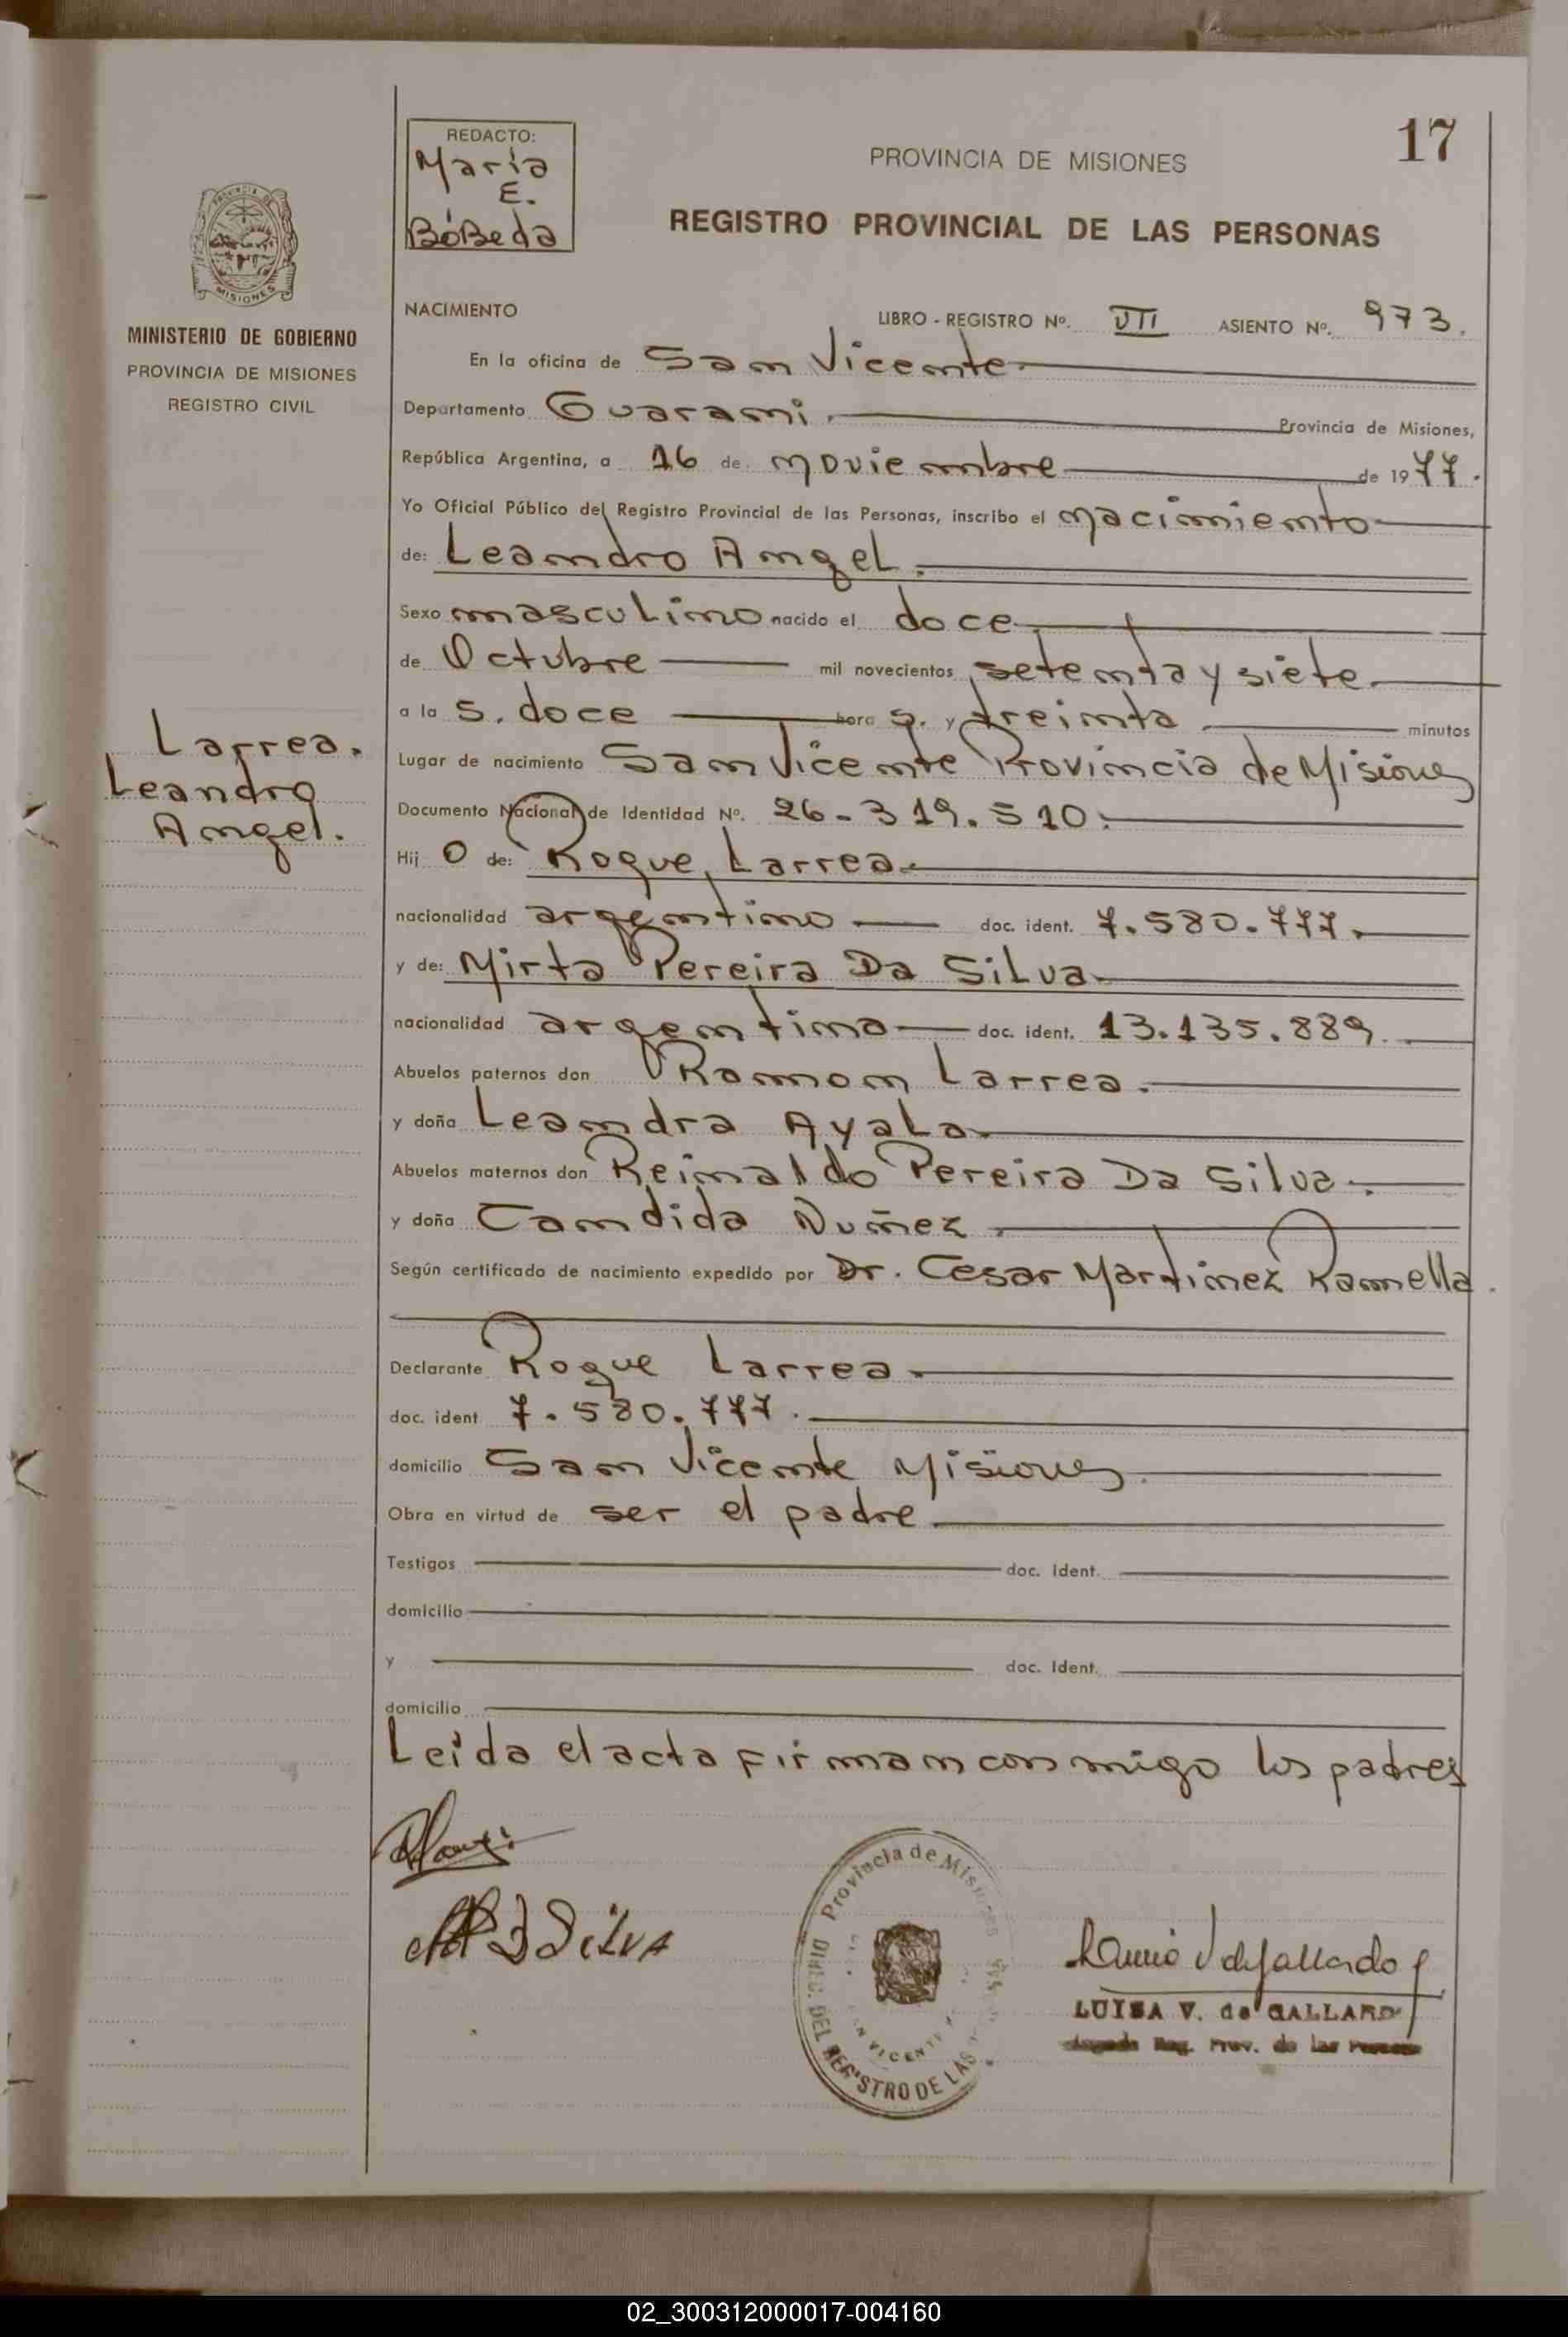 17
REDACTO:
Maria
E.
BóBeda
PROVINCIA DE MISIONES
REGISTRO PROVINCIAL DE LAS PERSONAS
MISIONES
MINISTERIO DE GOBIERNO
PROVINCIA DE MISIONES
REGISTRO CIVIL
Larrea.
Leandro
Angel.
NACIMIENTO
LIBRO - REGISTRO Nº. VII ASIENTO Nº. 973.
En la oficina de San Vicente
Departamento Guarani. Provincia de Misiones,
República Argentina, a 16 de noviembre de 1977.
Yo Oficial Público del Registro Provincial de las Personas, inscribo el nacimiento
de: Leandro Angel.
Sexo masculino nacido el doce
de Octubre mil novecientos setenta y siete.
a la s. doce hora s. y treinta minutos
Lugar de nacimiento San Vicente Provincia de Misiones
Documento Nacional de Identidad Nº. 26-319.510.
Hij o de: Roque Larrea
nacionalidad argentino doc. ident. 7.580.777.
y de: Mirta Pereira Da Silva
nacionalidad argentina doc. ident. 13.135.889.
Abuelos paternos don Ramon Larrea.
y doña Leandra Ayala
Abuelos maternos don Reinaldo Pereira Da Silva.
y doña Candida Nuñez
Según certificado de nacimiento expedido por Dr. Cesar Martinez Ramella.
Declarante Roque Larrea
doc. ident 7.580.777.
domicilio San Vicente Misiones.
Obra en virtud de ser el padre
Testigos doc. Ident.
domicilio
y doc. Ident.
domicilio
Leida el acta firman con migo los padres
Silva
Provincia de Misiones
DIREC. DEL REGISTRO DE LAS
VICENTE
LUISA V. de GALLARDO
Reg. Prov. de las Personas
02_300312000017-004160